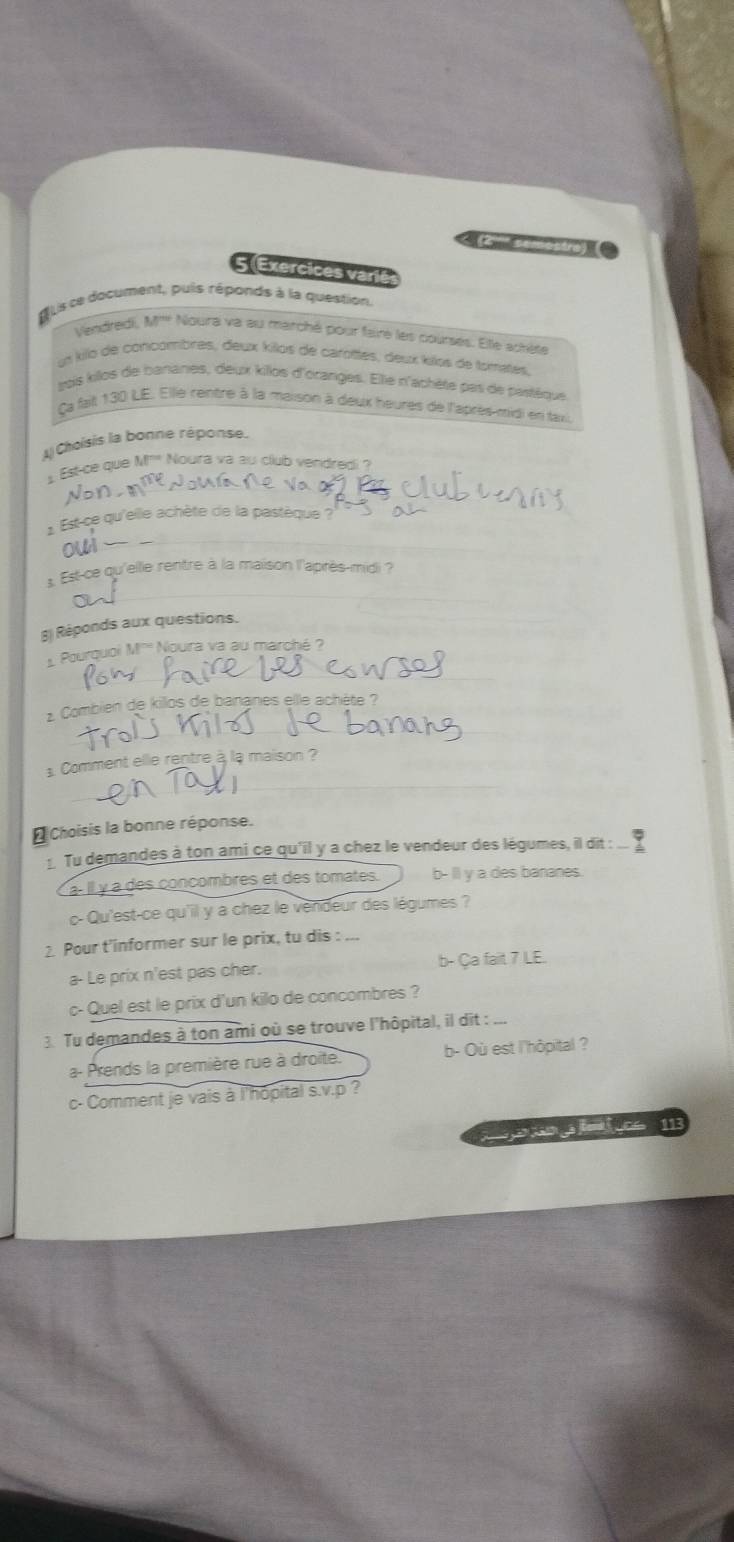 (2ème semestre)
5 Exercices variés
1 Lis ce document, puis réponds à la question.
Vendredi, Mme Noura va au marché pour faire les courses. Elle achète
un kilo de concombres, deux kilos de carottes, deux kilos de tomates,
trois kilos de bananes, deux kilos d'oranges. Elle n'achète pas de pastèque.
Ça fait 130 LE. Elle rentre à la maison à deux heures de l'après-midi en taxi.
A) Choisis la bonne réponse.
1. Est-ce que Mme Noura va au club vendredi ?
Non. Mme Noura ne va pas au club
2. Est-ce qu'elle achète de la pastèque ?
oui
3. Est-ce qu'elle rentre à la maison l'après-midi ?
B) Réponds aux questions.
1. Pourquoi Mme Noura va au marché ?
Pour faire les courses
2. Combien de kilos de bananes elle achète ?
trois kilos de banans
3. Comment elle rentre à la maison ?
en Taxi
2 Choisis la bonne réponse.
1. Tu demandes à ton ami ce qu'il y a chez le vendeur des légumes, il dit : ...
a- Il y a des concombres et des tomates. b- Il y a des bananes.
c- Qu'est-ce qu'il y a chez le vendeur des légumes ?
2. Pour t'informer sur le prix, tu dis : ...
a- Le prix n'est pas cher. b- Ça fait 7 LE.
c- Quel est le prix d'un kilo de concombres ?
3. Tu demandes à ton ami où se trouve l'hôpital, il dit : ...
a- Prends la première rue à droite. b- Où est l'hôpital ?
c- Comment je vais à l'hôpital s.v.p ?
113